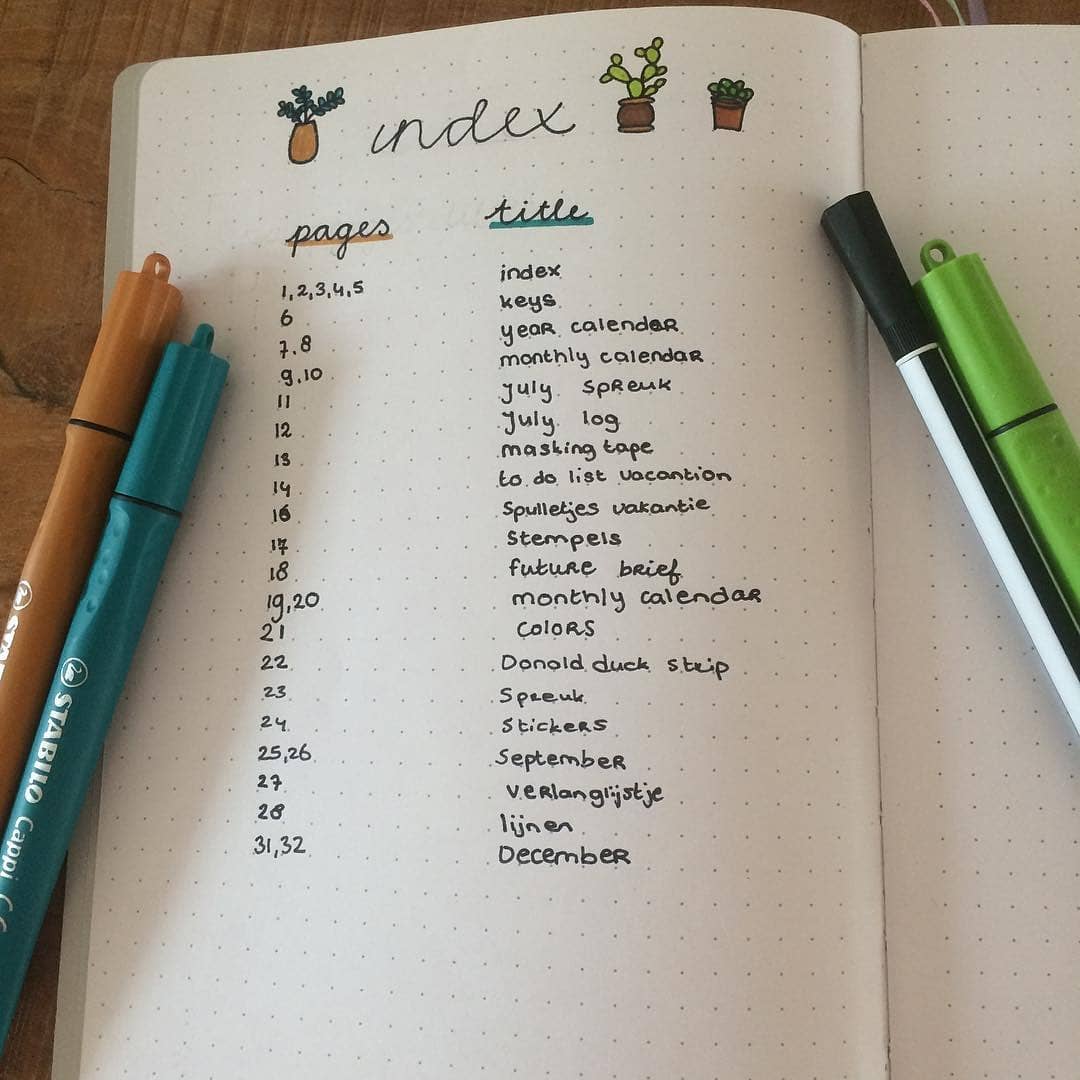 index
pages title
1,2,3,4,5 index
6 keys
7.8 year calendar
9,10 monthly calendar
11 july spreuk
12 July log
13 masking tape
14 to do list vacantion
16 Spulletjes vakantie
17 Stempels
18 future brief
19,20 monthly calendar
21 Colors
22 Donald duck strip
23 Spreuk
24 Stickers
25,26 September
27 verlanglijstje
28 lijnen
31,32 December
STABILO Cappi
STA